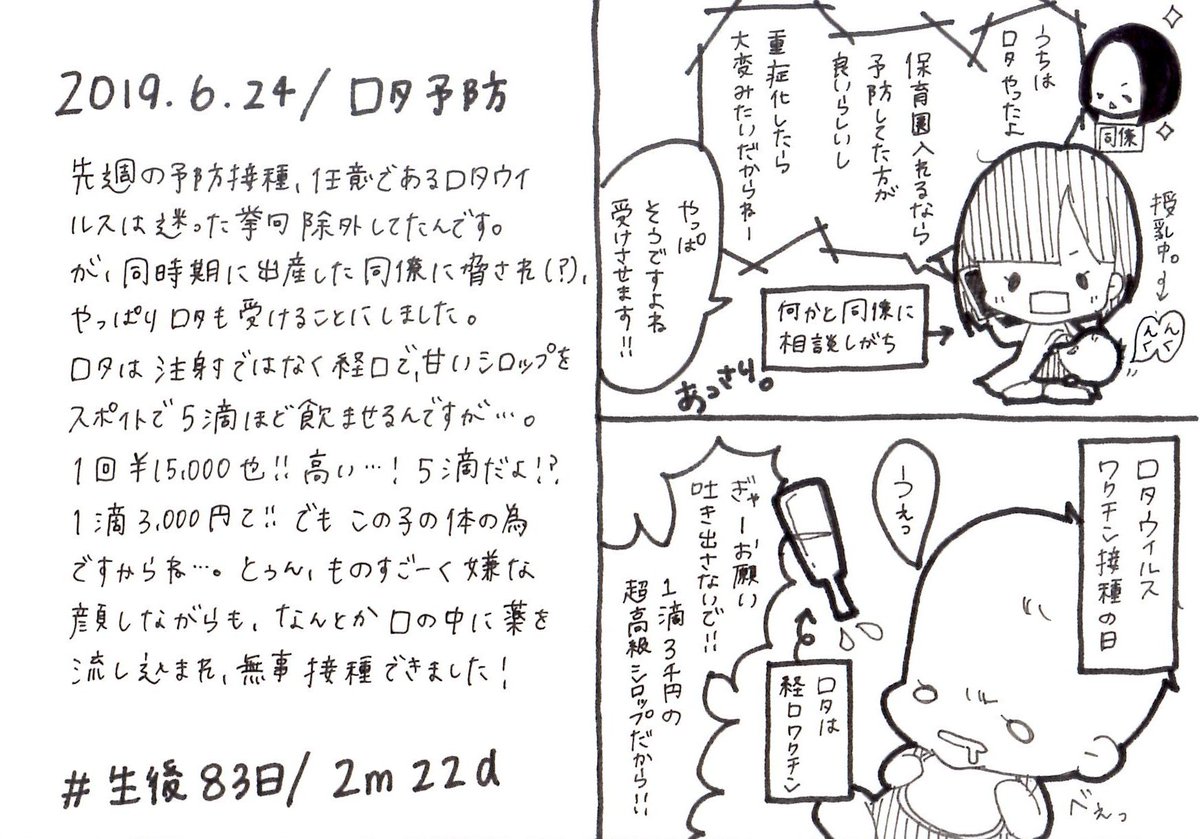 2019.6.24/ロタ予防
先週の予防接種、任意であるロタウイ
ルスは迷った挙句除外してたんです。
が、同時期に出産した同僚に脅され(?)、
やっぱりロタも受けることにしました。
ロタは注射ではなく経口で、甘いシロップを
スポイトで5滴ほど飲ませるんですが…。
1回¥15,000也!!高い…!5滴だよ!?
1滴3,000円て!!でもこの子の体の為
ですからね…。とぅん、ものすごーく嫌な
顔しながらも、なんとか口の中に薬を
流し込まれ、無事接種できました!
#生後83日/2m22d
うちは
ロタやったよ
保育園入れるなら
予防してた方が
良いらしいし
重症化したら
大変みたいだからねー
同僚
授乳中。
んく
んく
やっぱ
そうですよね
受けさせます!!
あっさり。
何かと同僚に
相談しがち
ロタウイルス
ワクチン接種の日
うえっ
ぎゃーお願い
吐き出さないで!!
1滴3千円の
超高級シロップだから!!
ロタは
経口ワクチン
べぇっ